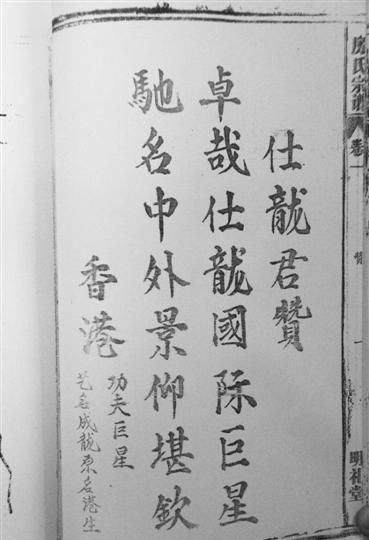 房氏宗譜
卷一
贊
一
明祀堂
仕龍君贊
卓哉仕龍國际巨星
馳名中外景仰堪欽
香港
功夫巨星
艺名成龍原名港生